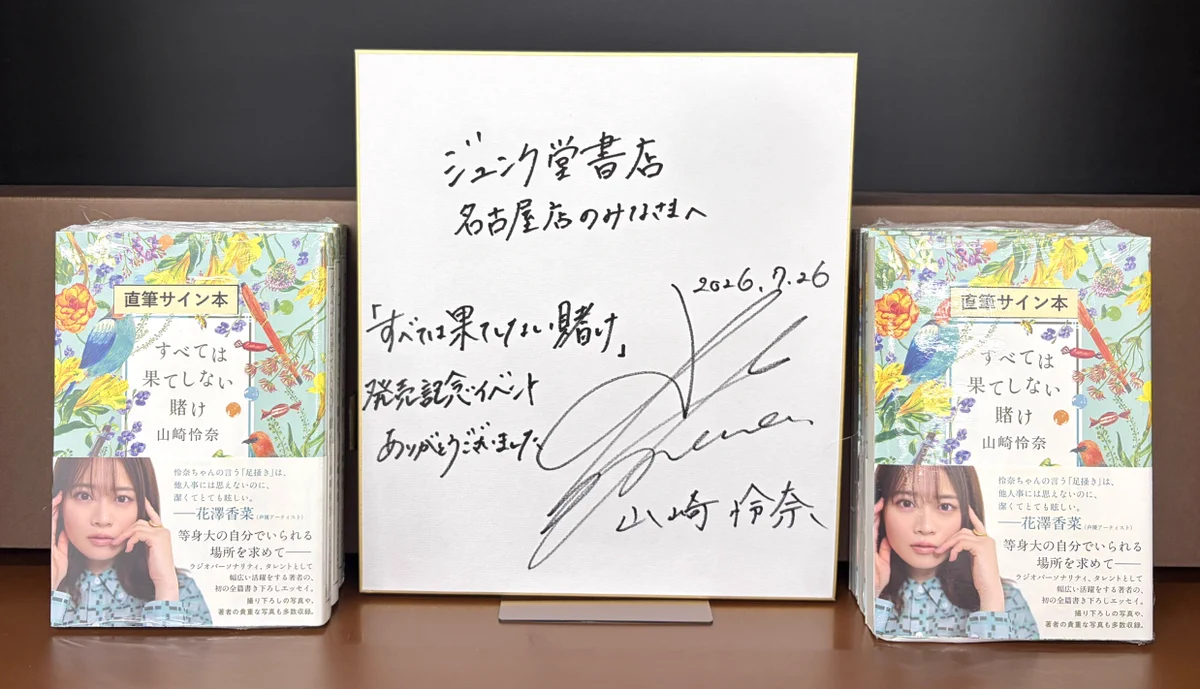 ジュンク堂書店
名古屋店のみなさまへ
2026.7.26
「すべては果てしない賭け」
発売記念イベント
ありがとうございました
山崎怜奈
直筆サイン本
すべては
果てしない
賭け
山崎怜奈
怜奈ちゃんの言う「足掻き」は、
他人事には思えないのに、
潔くてとても眩しい。
──花澤香菜(声優アーティスト)
等身大の自分でいられる
場所を求めて──
ラジオパーソナリティ、タレントとして
幅広い活躍をする著者の、
初の全篇書き下ろしエッセイ。
撮り下ろしの写真や、
著者の貴重な写真も多数収録。
直筆サイン本
すべては
果てしない
賭け
山崎怜奈
怜奈ちゃんの言う「足掻き」は、
他人事には思えないのに、
潔くてとても眩しい。
──花澤香菜(声優アーティスト)
等身大の自分でいられる
場所を求めて──
ラジオパーソナリティ、タレントとして
幅広い活躍をする著者の、
初の全篇書き下ろしエッセイ。
撮り下ろしの写真や、
著者の貴重な写真も多数収録。